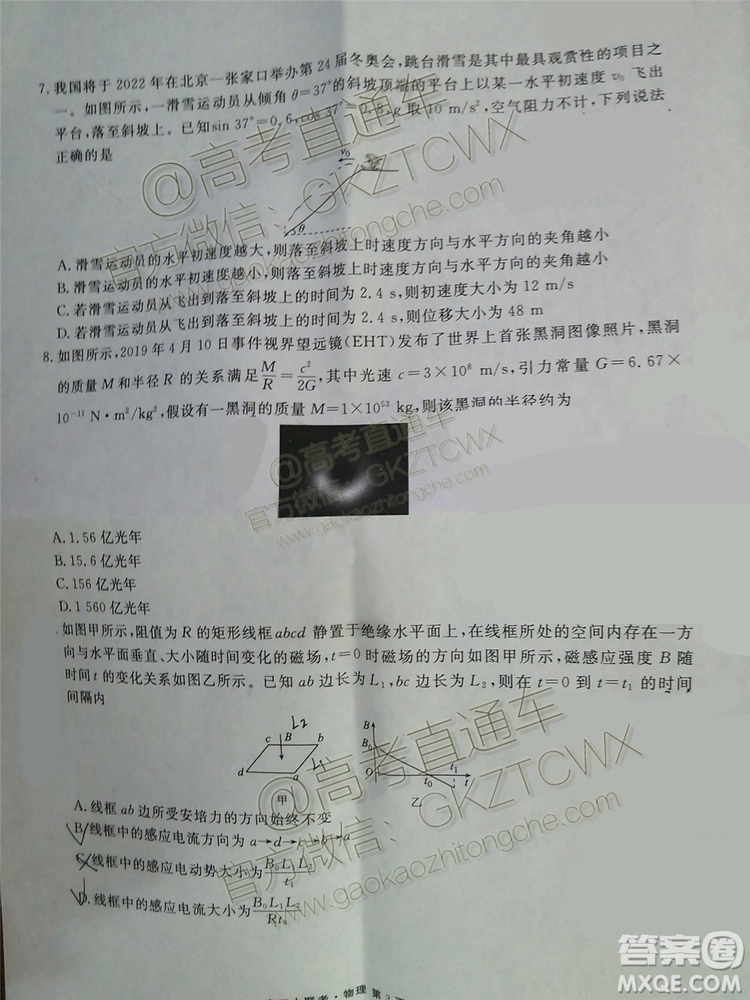 7.我国将于 2022 年在北京—张家口举办第 24 届冬奥会，跳台滑雪是其中最具观赏性的项目之
一。如图所示，一滑雪运动员从倾角θ=37°的斜坡顶端的平台上以某一水平初速度 v₀ 飞出
平台，落至斜坡上。已知sin 37°=0.6,cos 37°=0.8,g 取10 m/s²,空气阻力不计，下列说法
正确的是
v₀
θ
A.滑雪运动员的水平初速度越大，则落至斜坡上时速度方向与水平方向的夹角越小
B.滑雪运动员的水平初速度越小，则落至斜坡上时速度方向与水平方向的夹角越小
C.若滑雪运动员从飞出到落至斜坡上的时间为 2.4 s,则初速度大小为 12 m/s
D.若滑雪运动员从飞出到落至斜坡上的时间为 2.4 s,则位移大小为 48 m
8.如图所示，2019 年 4 月 10 日事件视界望远镜(EHT)发布了世界上首张黑洞图像照片，黑洞
的质量 M 和半径 R 的关系满足M/R=c²/2G,其中光速 c=3×10⁸ m/s,引力常量 G=6.67×
10⁻¹¹ N·m²/kg²,假设有一黑洞的质量 M=1×10⁵³ kg,则该黑洞的半径约为
A.1.56 亿光年
B.15.6 亿光年
C.156 亿光年
D.1 560 亿光年
如图甲所示，阻值为 R 的矩形线框 abcd 静置于绝缘水平面上，在线框所处的空间内存在一方
向与水平面垂直、大小随时间变化的磁场，t=0 时磁场的方向如图甲所示，磁感应强度 B 随
时间 t 的变化关系如图乙所示。已知 ab 边长为 L₁,bc 边长为 L₂,则在 t=0 到 t=t₁ 的时间
间隔内
L2
c B b
L1
d a
甲
B
B₀
O t₀ t₁ t
乙
A.线框 ab 边所受安培力的方向始终不变
B.线框中的感应电流方向为 a→d→c→b→a
C.线框中的感应电动势大小为B₀L₁L₂/t₁
D.线框中的感应电流大小为B₀L₁L₂/Rt₀
联考·物理 第 3 页
@高考直通车
官方微信：GKZTCWX
www.gaokaozhitongche.com
@高考直通车
官方微信：GKZTCWX
www.gaokaozhitongche.com
@高考直通车
官方微信：GKZTCWX
www.gaokaozhitongche.com
答案卷
MXQE.COM